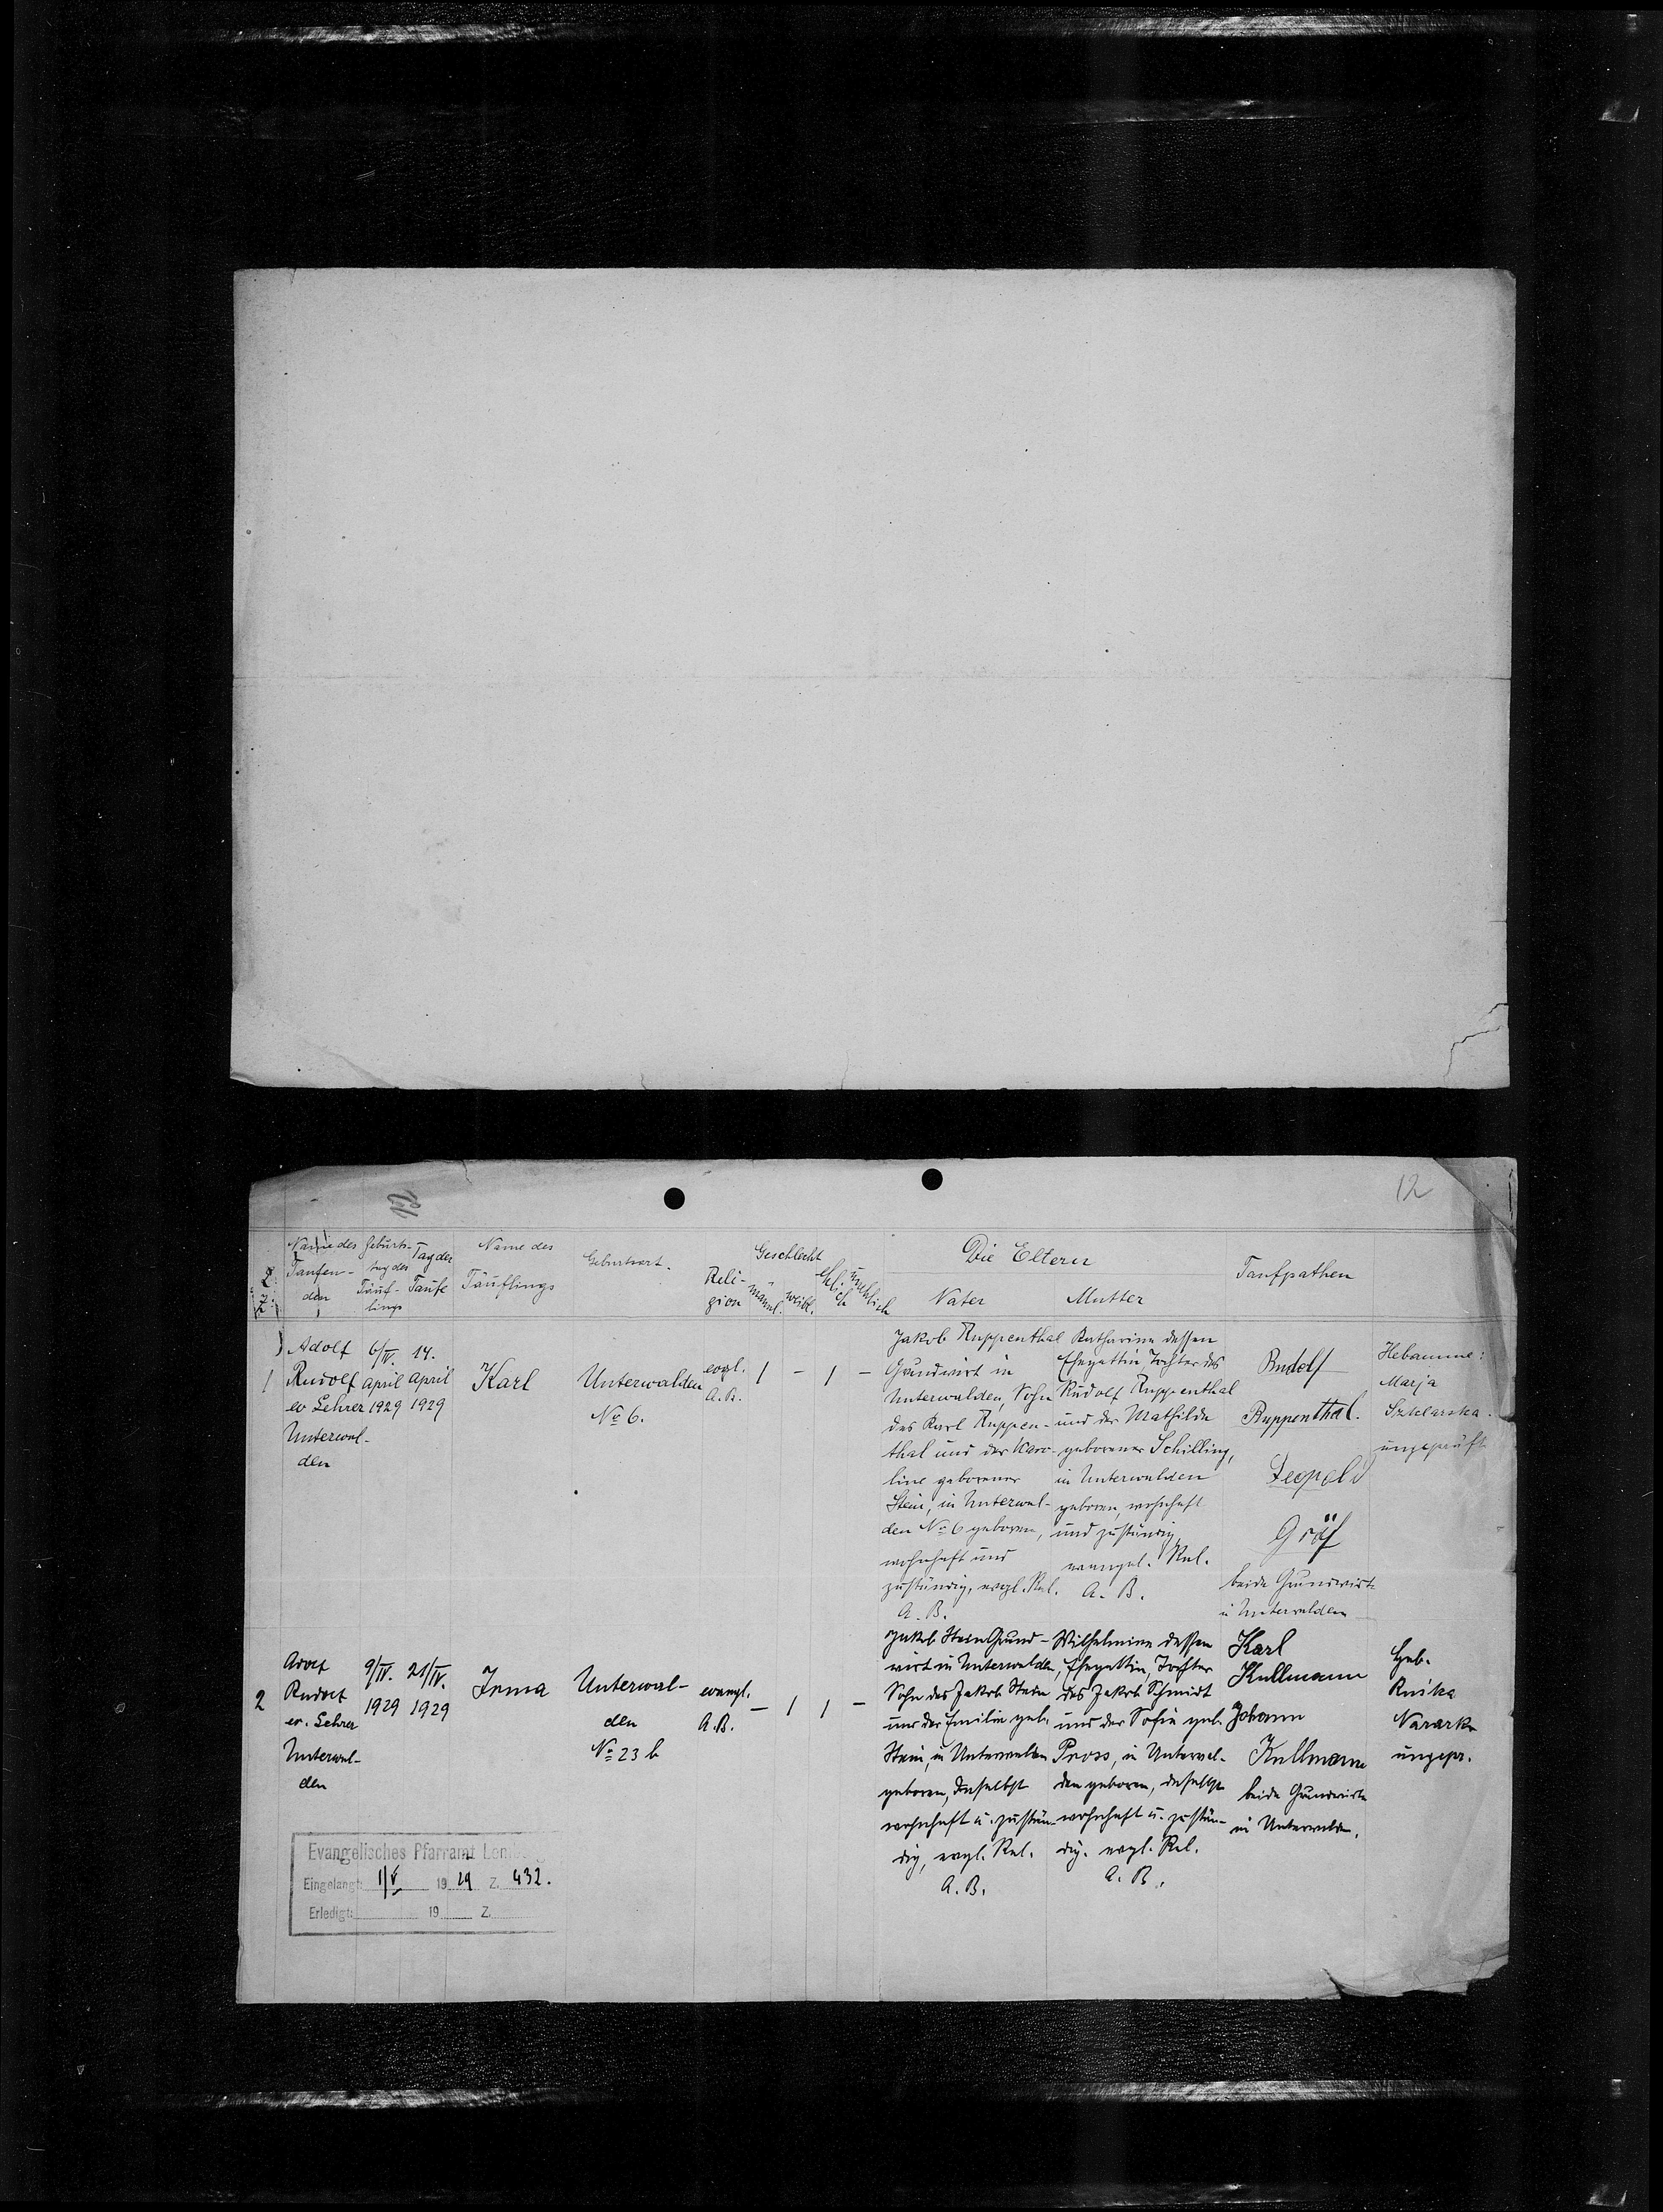 12
Name des Taufenden
Geburtstag des Täuflings
Tag der Taufe
Name des Täuflings
Geburtsort.
Religion
Geschlecht
männl.
weibl.
ehelich
unehelich
Die Eltern
Vater
Mutter
Taufpathen
1
Adolf
Rudolf
ev Lehrer
Unterwal-
den
6/IV.
April
1929
14.
April
1929
Karl
Unterwalden
No 6.
evgl.
A. B.
1
-
1
-
Jakob Ruppenthal
Grundwirt in
Unterwalden, Sohn
des Karl Ruppen-
thal und der Karo-
line geborener
Stein, in Unterwal-
den No 6 geboren,
wohnhaft und
zuständig, evgl. Rel.
A. B.
Katharina dessen
Ehegattin, Tochter des
Rudolf Ruppenthal
und der Mathilde
geborener Schilling,
in Unterwalden
geboren, wohnhaft
und zuständig,
evangel. Rel.
A. B.
Rudolf
Ruppenthal.
Leopold
Gräf
beide Grundwirte
in Unterwalden
Hebamme:
Marja
Szklarska.
ungeprüft
2
Adolf
Rudolf
ev. Lehrer
Unterwal-
den
9/IV.
1929
21/IV.
1929
Irma
Unterwal-
den
No 23 b
evangl.
A. B.
-
1
1
-
Jakob Stein Grund-
wirt in Unterwalden,
Sohn des Jakob Stein
und der Emilie geb.
Stein, in Unterwalden
geboren, daselbst
wohnhaft u. zustän-
dig, evgl. Rel.
A. B.
Wilhelmine dessen
Ehegattin, Tochter
des Jakob Schmidt
und der Sofie geb.
Pross, in Unterwal-
den geboren, daselbst
wohnhaft u. zustän-
dig. evgl. Rel.
A. B.
Karl
Kullmann
Johann
Kullmann
beide Grundwirte
in Unterwalden.
Heb.
Ruska
ungepr.
Evangelisches Pfarramt
Eingelangt: 1/V 1929 Z. 432.
Erledigt: 19 Z.